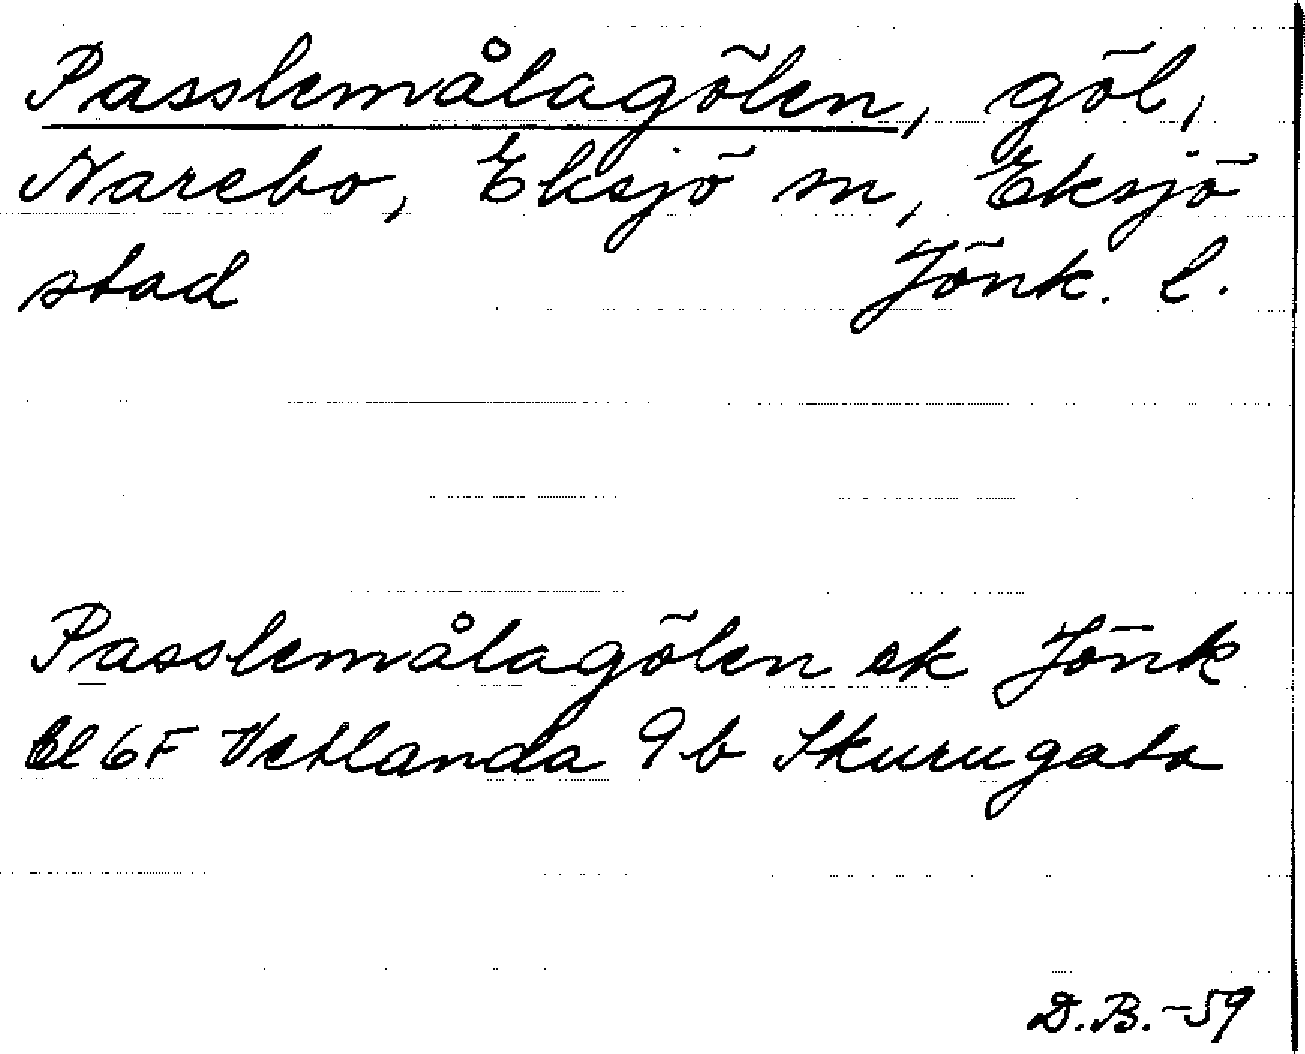 Passlemålagölen, göl,
Narebo, Eksjö m, Eksjö
stad Jönk. l.
Passlemålagölen ek Jönk
Bl 6F Vetlanda 9b Skurugata
D.B.-59